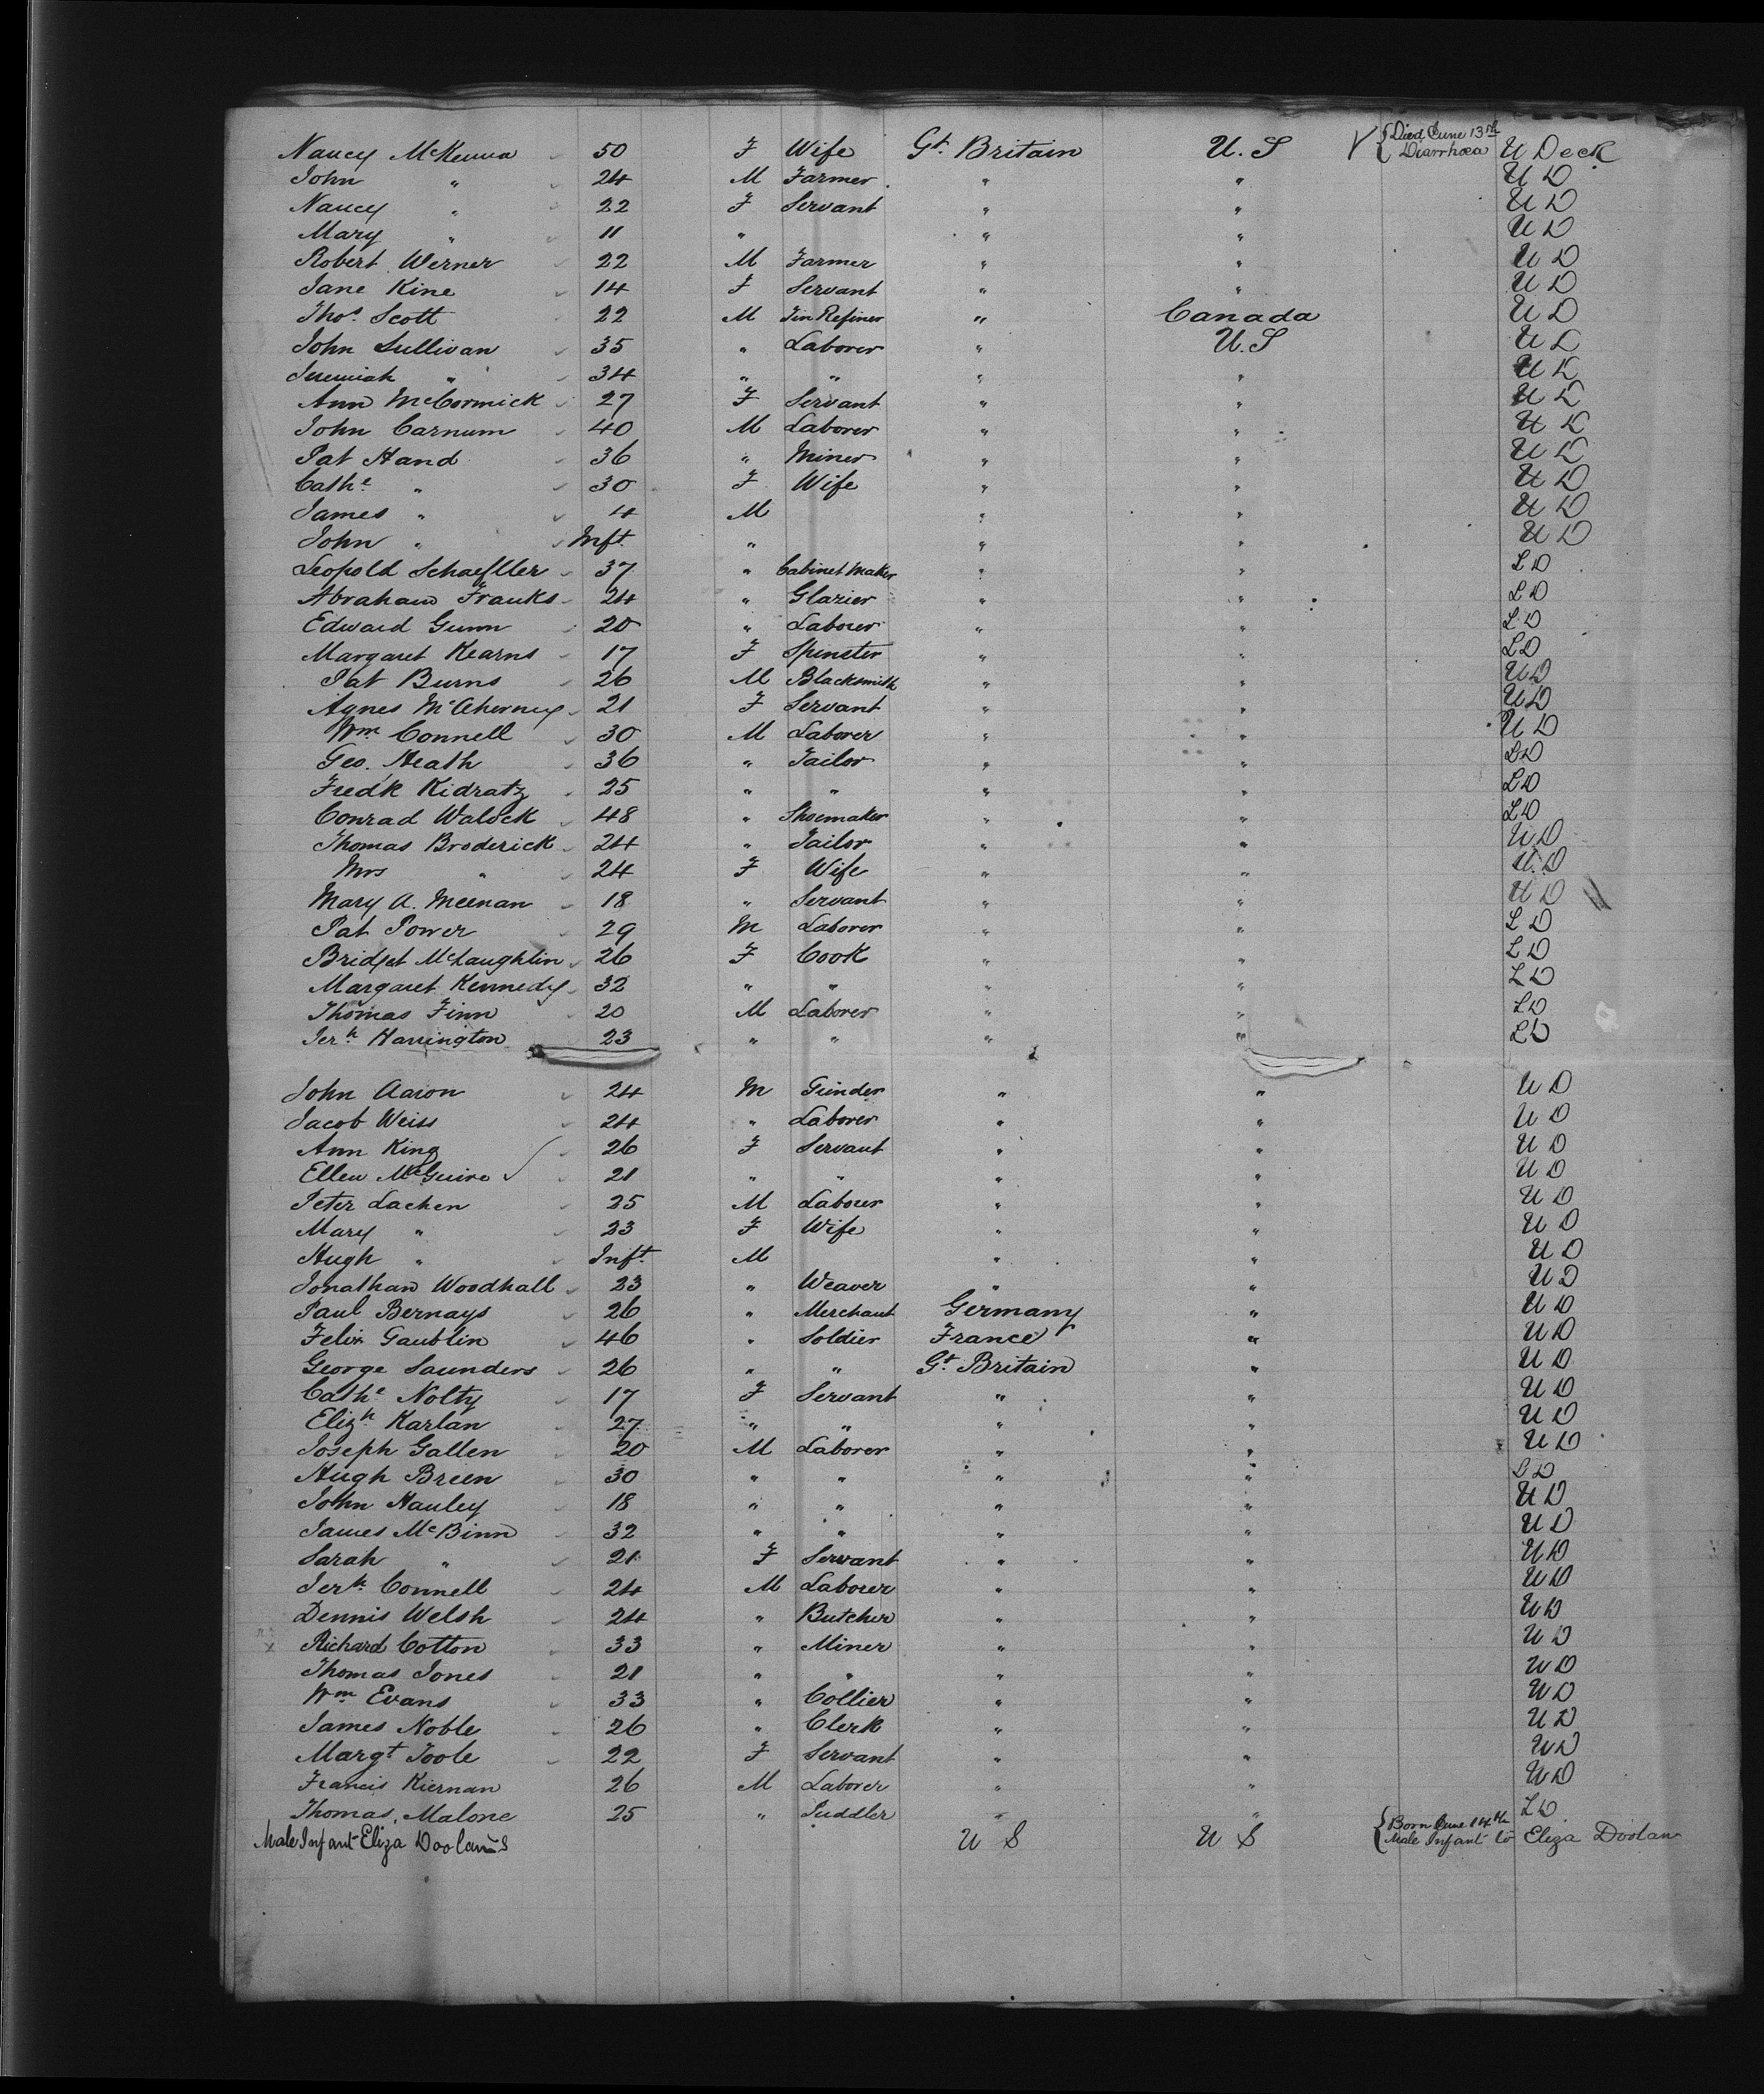 Nancy McKenna 50 F Wife Gt. Britain U.S {Died June 13th Diarrhœa U Deck
John " 24 M Farmer " " U D
Nancy " 22 F Servant " " U D
Mary " 11 " " " U D
Robert Werner 22 M Farmer " " U D
Jane Kine 14 F Servant " " U D
Thos. Scott 22 M Tin Refiner " Canada U D
John Sullivan 35 " Laborer " U.S U D
Jeremiah " 34 " " " " U D
Ann McCormick 27 F Servant " " U D
John Carnum 40 M Laborer " " U D
Pat Hand 36 " Miner " " U D
Cathe. " 30 F Wife " " U D
James " 4 M " " U D
John " Inft. " " " U D
Leopold Schaefller 37 " Cabinet Maker " " L D
Abraham Franks 24 " Glazier " " L D
Edward Gunn 20 " Laborer " " L D
Margaret Kearns 17 F Spinster " " L D
Pat Burns 26 M Blacksmith " " U D
Agnes McAherney 21 F Servant " " U D
Wm. Connell 30 M Laborer " " U D
Geo. Heath 36 " Tailor " " L D
Fredk Kidratz 25 " " " " L D
Conrad Walock 48 " Shoemaker " " L D
Thomas Broderick 24 " Tailor " " U D
Mrs " 24 F Wife " " U D
Mary A. Meenan 18 " Servant " " U D
Pat Power 29 M Laborer " " L D
Bridget McLaughlin 26 F Cook " " L D
Margaret Kennedy 32 " " " " L D
Thomas Finn 20 M Laborer " " L D
Jerh. Harrington 23 " " " " L D
John Aaron 24 M Grinder " " U D
Jacob Weiss 24 " Laborer " " U D
Ann King 26 F Servant " " U D
Ellen McGuire 21 " " " " U D
Peter Lacken 25 M Laborer " " U D
Mary " 23 F Wife " " U D
Hugh " Inft. M " " U D
Jonathan Woodhall 23 " Weaver " " U D
Paul Bernays 26 " Merchant Germany " U D
Felix Gaublin 46 " Soldier France " U D
George Saunders 26 " " Gt. Britain " U D
Cathe. Nolty 17 F Servant " " U D
Elizh. Karlan 27 " " " " U D
Joseph Gallen 20 M Laborer " " U D
Hugh Breen 30 " " " " L D
John Hanley 18 " " " " U D
James McBinn 32 " " " " U D
Sarah " 21 F Servant " " U D
Jerh. Connell 24 M Laborer " " U D
Dennis Welsh 24 " Butcher " " U D
Richard Cotton 33 " Miner " " U D
Thomas Jones 21 " " " " U D
Wm. Evans 33 " Collier " " U D
James Noble 26 " Clerk " " U D
Margt Toole 22 F Servant " " U D
Francis Kiernan 26 M Laborer " " U D
Thomas Malone 25 " Puddler " " L D
Male Infant Eliza Doolan's U S U S {Born June 14th Male Infant to Eliza Doolan